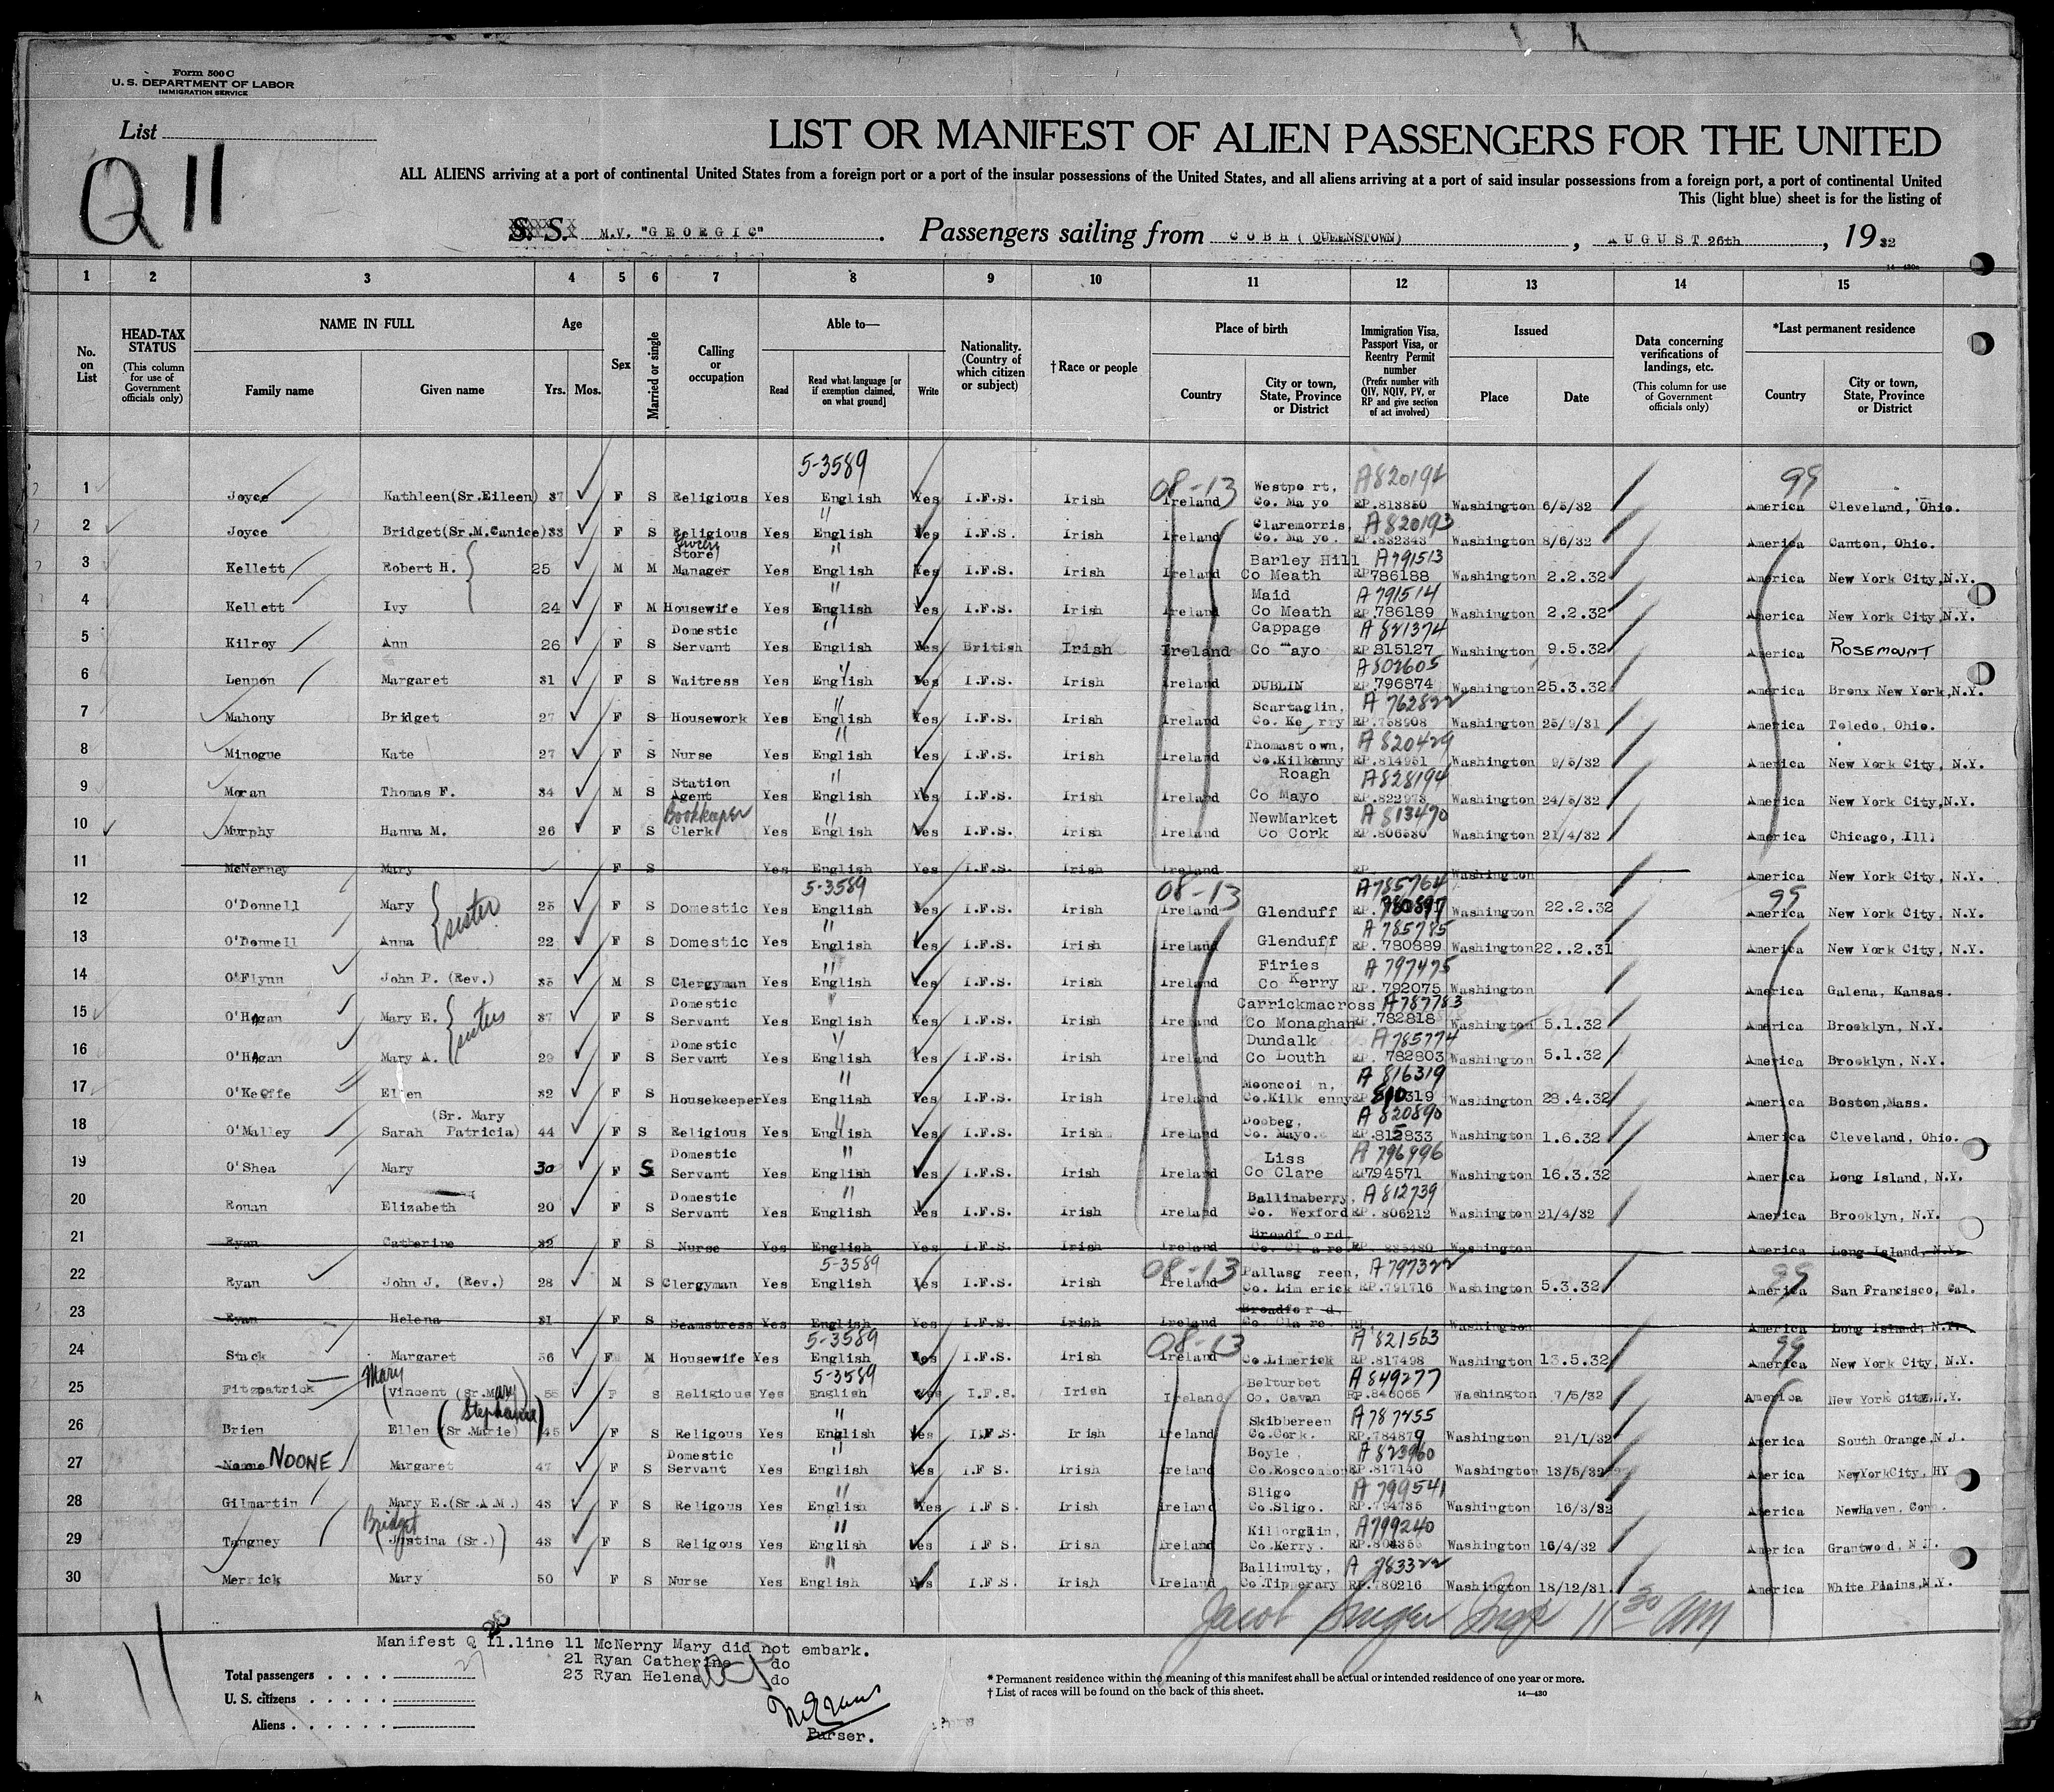 Form 500 C
U. S. DEPARTMENT OF LABOR
IMMIGRATION SERVICE
List
Q 11
LIST OR MANIFEST OF ALIEN PASSENGERS FOR THE UNITED
ALL ALIENS arriving at a port of continental United States from a foreign port or a port of the insular possessions of the United States, and all aliens arriving at a port of said insular possessions from a foreign port, a port of continental United
This (light blue) sheet is for the listing of
S. S. M.V. "GEORGIC" . Passengers sailing from COBH (QUEENSTOWN) , AUGUST 26th , 19 32
14—430a
1 2 3 4 5 6 7 8 9 10 11 12 13 14 15
No. on List
HEAD-TAX STATUS (This column for use of Government officials only)
NAME IN FULL Family name Given name
Age Yrs. Mos.
Sex
Married or single
Calling or occupation
Able to— Read Read what language [or if exemption claimed, on what ground] Write
Nationality. (Country of which citizen or subject)
† Race or people
Place of birth Country City or town, State, Province or District
Immigration Visa, Passport Visa, or Reentry Permit number (Prefix number with QIV, NQIV, PV, or RP and give section of act involved)
Issued Place Date
Data concerning verifications of landings, etc. (This column for use of Government officials only)
*Last permanent residence Country City or town, State, Province or District
5-3589 08-13 A820194 99
1 Joyce Kathleen(Sr.Eileen) 37 F S Religious Yes English Yes I.F.S. Irish Ireland Westport, Co. Mayo RP.813850 Washington 6/5/32 America Cleveland, Ohio.
2 Joyce Bridget(Sr.M.Canice) 33 F S Religious Yes English Yes I.F.S. Irish Ireland Claremorris, Co. Mayo. A820193 RP.832343 Washington 8/6/32 America Canton, Ohio.
3 Kellett Robert H. 25 M M Store Manager Yes English Yes I.F.S. Irish Ireland Barley Hill Co Meath A791513 RP 786188 Washington 2.2.32 America New York City, N.Y.
4 Kellett Ivy 24 F M Housewife Yes English Yes I.F.S. Irish Ireland Maid Co Meath A791514 RP.786189 Washington 2.2.32 America New York City N.Y.
5 Kilroy Ann 26 F S Domestic Servant Yes English Yes British Irish Ireland Cappage Co Mayo A821374 RP 815127 Washington 9.5.32 America ROSEMOUNT
6 Lennon Margaret 31 F S Waitress Yes English Yes I.F.S. Irish Ireland DUBLIN A802605 RP.796874 Washington 25.3.32 America Bronx New York, N.Y.
7 Mahony Bridget 27 F S Housework Yes English Yes I.F.S. Irish Ireland Scartaglin, Co. Kerry A762822 RP.758908 Washington 25/9/31 America Toledo, Ohio.
8 Minogue Kate 27 F S Nurse Yes English Yes I.F.S. Irish Ireland Thomastown, Co.Kilkenny A820429 RP.814951 Washington 9/5/32 America New York City, N.Y.
9 Moran Thomas F. 34 M S Station Agent Yes English Yes I.F.S. Irish Ireland Roagh Co Mayo A828194 RP.822973 Washington 24/5/32 America New York City, N.Y.
10 Murphy Hanna M. 26 F S Bookkeeper Clerk Yes English Yes I.F.S. Irish Ireland NewMarket Co Cork A813470 RP.806580 Washington 21/4/32 America Chicago, Ill
11 McNerney Mary F S Yes English Yes I.F.S. Irish Ireland RP Washington America New York City, N.Y.
12 O'Donnell Mary sister 25 F S Domestic Yes 5-3589 English Yes I.F.S. Irish 08-13 Ireland Glenduff A785764 RP. 780897 Washington 22.2.32 99 America New York City, N.Y.
13 O'Donnell Anna 22 F S Domestic Yes English Yes I.F.S. Irish Ireland Glenduff A785785 RP. 780889 Washington 22..2.31 America New York City, N.Y.
14 O'Flynn John P. (Rev.) 35 M S Clergyman Yes English Yes I.F.S. Irish Ireland Firies Co Kerry A797475 RP. 792075 Washington America Galena, Kansas.
15 O'Hagan Mary E. sisters 37 F S Domestic Servant Yes English Yes I.F.S. Irish Ireland Carrickmacross Co Monaghan A787783 RP.782818 Washington 5.1.32 America Brooklyn, N.Y.
16 O'Hagan Mary A. 29 F S Domestic Servant Yes English Yes I.F.S. Irish Ireland Dundalk Co Louth A785774 RP. 782803 Washington 5.1.32 America Brooklyn, N.Y.
17 O'Keeffe Ellen 32 F S Housekeeper Yes English Yes I.F.S. Irish Ireland Mooncoin, Co.Kilkenny A 816319 RP 810319 Washington 28.4.32 America Boston, Mass.
18 O'Malley Sarah (Sr. Mary Patricia) 44 F S Religious Yes English Yes I.F.S. Irish Ireland Doobeg, Co. Mayo. A 820890 RP.815833 Washington 1.6.32 America Cleveland, Ohio.
19 O'Shea Mary 30 F S Domestic Servant Yes English Yes I.F.S. Irish Ireland Liss Co Clare A 796996 RP 794571 Washington 16.3.32 America Long Island, N.Y.
20 Ronan Elizabeth 20 F S Domestic Servant Yes English Yes I.F.S. Irish Ireland Ballinaberry, Co. Wexford A812739 RP. 806212 Washington 21/4/32 America Brooklyn, N.Y.
21 Ryan Catherine 32 F S Nurse Yes English Yes I.F.S. Irish Ireland Broadford Co. Clare RP Washington America Long Island, N.Y.
22 Ryan John J. (Rev.) 28 M S Clergyman Yes 5-3589 English Yes I.F.S. Irish 08-13 Ireland Pallasgreen, Co. Limerick A797322 RP.791716 Washington 5.3.32 99 America San Francisco, Cal.
23 Ryan Helena 31 F S Seamstress Yes English Yes I.F.S. Irish Ireland Broadford. Co Clare. RP Washington America Long Island, N.Y.
24 Stack Margaret 56 F M Housewife Yes 5-3589 English Yes I.F.S. Irish 08-13 Ireland Co.Limerick A821563 RP.817498 Washington 13.5.32 99 America New York City, N.Y.
25 Fitzpatrick Mary (Vincent (Sr.Mary) 55 F S Religious Yes 5-3589 English Yes I.F.S. Irish Ireland Belturbet Co. Cavan A849277 RP.846065 Washington 7/5/32 America New York City, N.Y.
26 Brien Ellen (Sr Marie Stephanie) 45 F S Religous Yes English Yes I.F.S. Irish Ireland Skibbereen Co.Cork. A787455 RP.784879 Washington 21/1/32 America South Orange, N J.
27 Noone NOONE Margaret 47 F S Domestic Servant Yes English Yes I.F S. Irish Ireland Boyle, Co.Roscommon A823960 RP.817140 Washington 13/5/32 America NewYorkCity, NY
28 Gilmartin Mary E.(Sr.A.M.) 43 F S Religous Yes English Yes I.F S. Irish Ireland Sligo Co.Sligo. A 799541 RP.794735 Washington 16/3/32 America NewHaven, Conn.
29 Tangney Bridget (Justina (Sr.) 43 F S Religous Yes English Yes I F S. Irish Ireland Killorglin, Co.Kerry. A799240 Washington 16/4/32 America Grantwood, N J.
30 Merrick Mary 50 F S Nurse Yes English Yes I.F S. Irish Ireland Ballinulty, Co.Tipperary A 783322 RP.780216 Washington 18/12/31. America White Plains, N.Y.
Jacob Insp 11 30 AM
Manifest Q 11.line 11 McNerny Mary did not embark.
21 Ryan Catherine do
23 Ryan Helena do
Total passengers . . . . 27
U. S. citizens . . . . .
Aliens . . . . . .
Purser.
* Permanent residence within the meaning of this manifest shall be actual or intended residence of one year or more.
† List of races will be found on the back of this sheet.
14—430
11